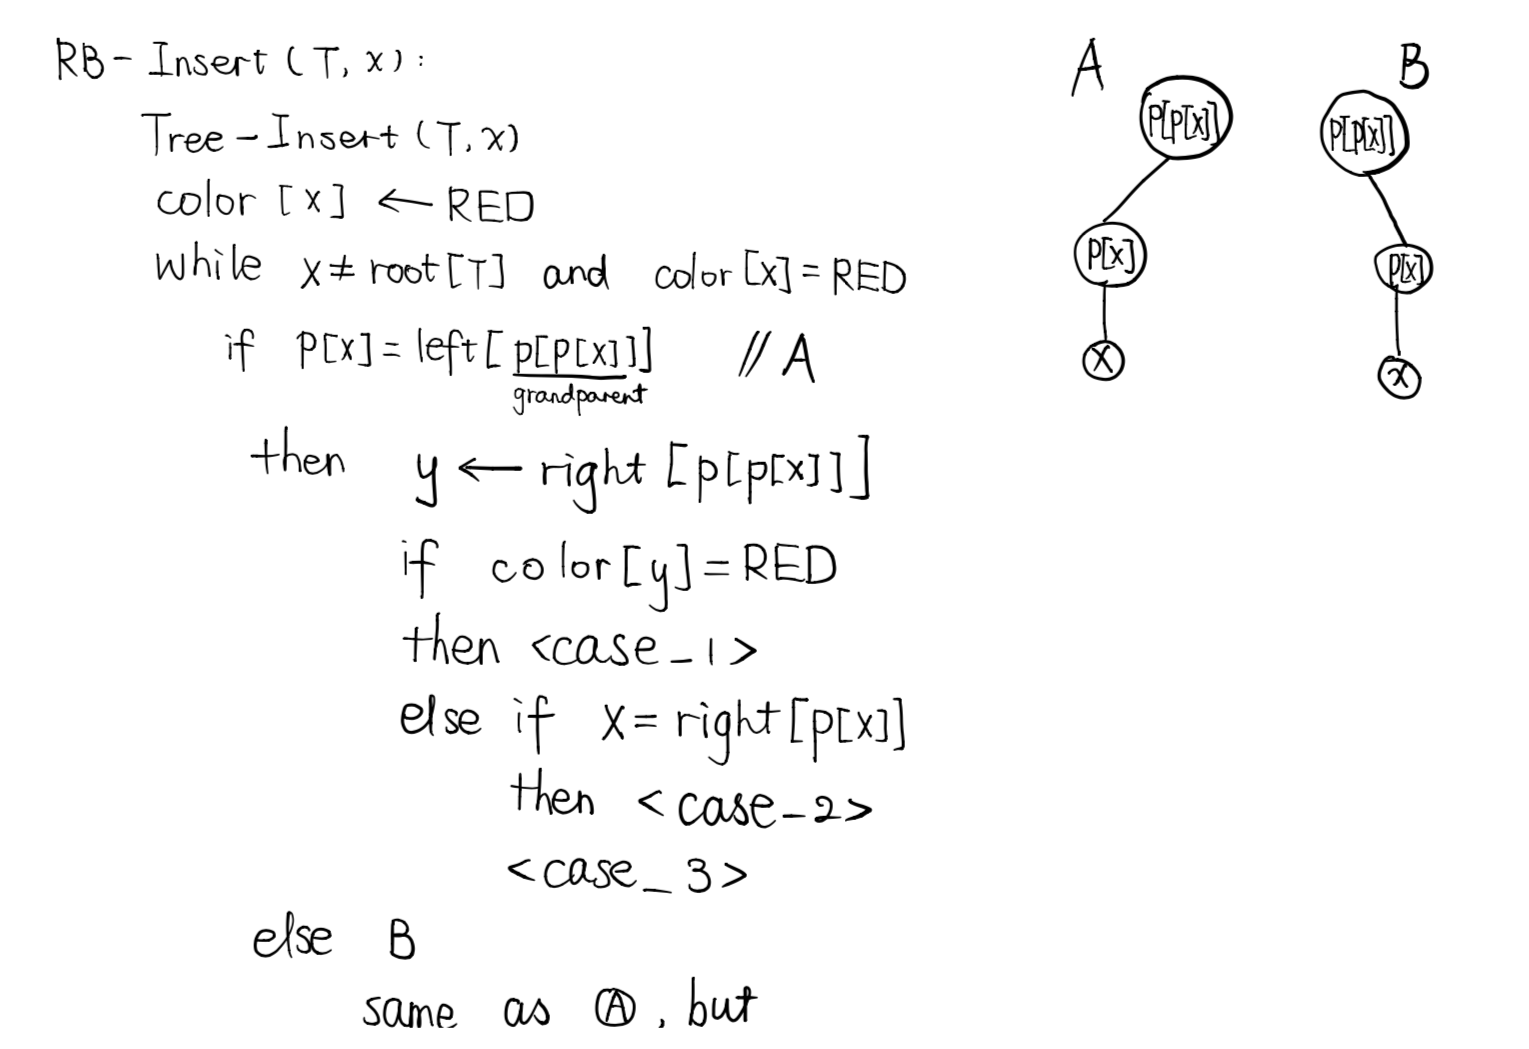 RB-Insert (T, x):
Tree-Insert (T, x)
color [x] ← RED
while x ≠ root[T] and color[x] = RED
if P[x] = left[p[p[x]]] // A
grandparent
then y ← right [p[p[x]]]
if color[y] = RED
then <case_1>
else if x = right[p[x]]
then <case_2>
<case_3>
else B
same as Ⓐ, but
A
P[p[x]]
P[x]
x
B
P[p[x]]
p[x]
x